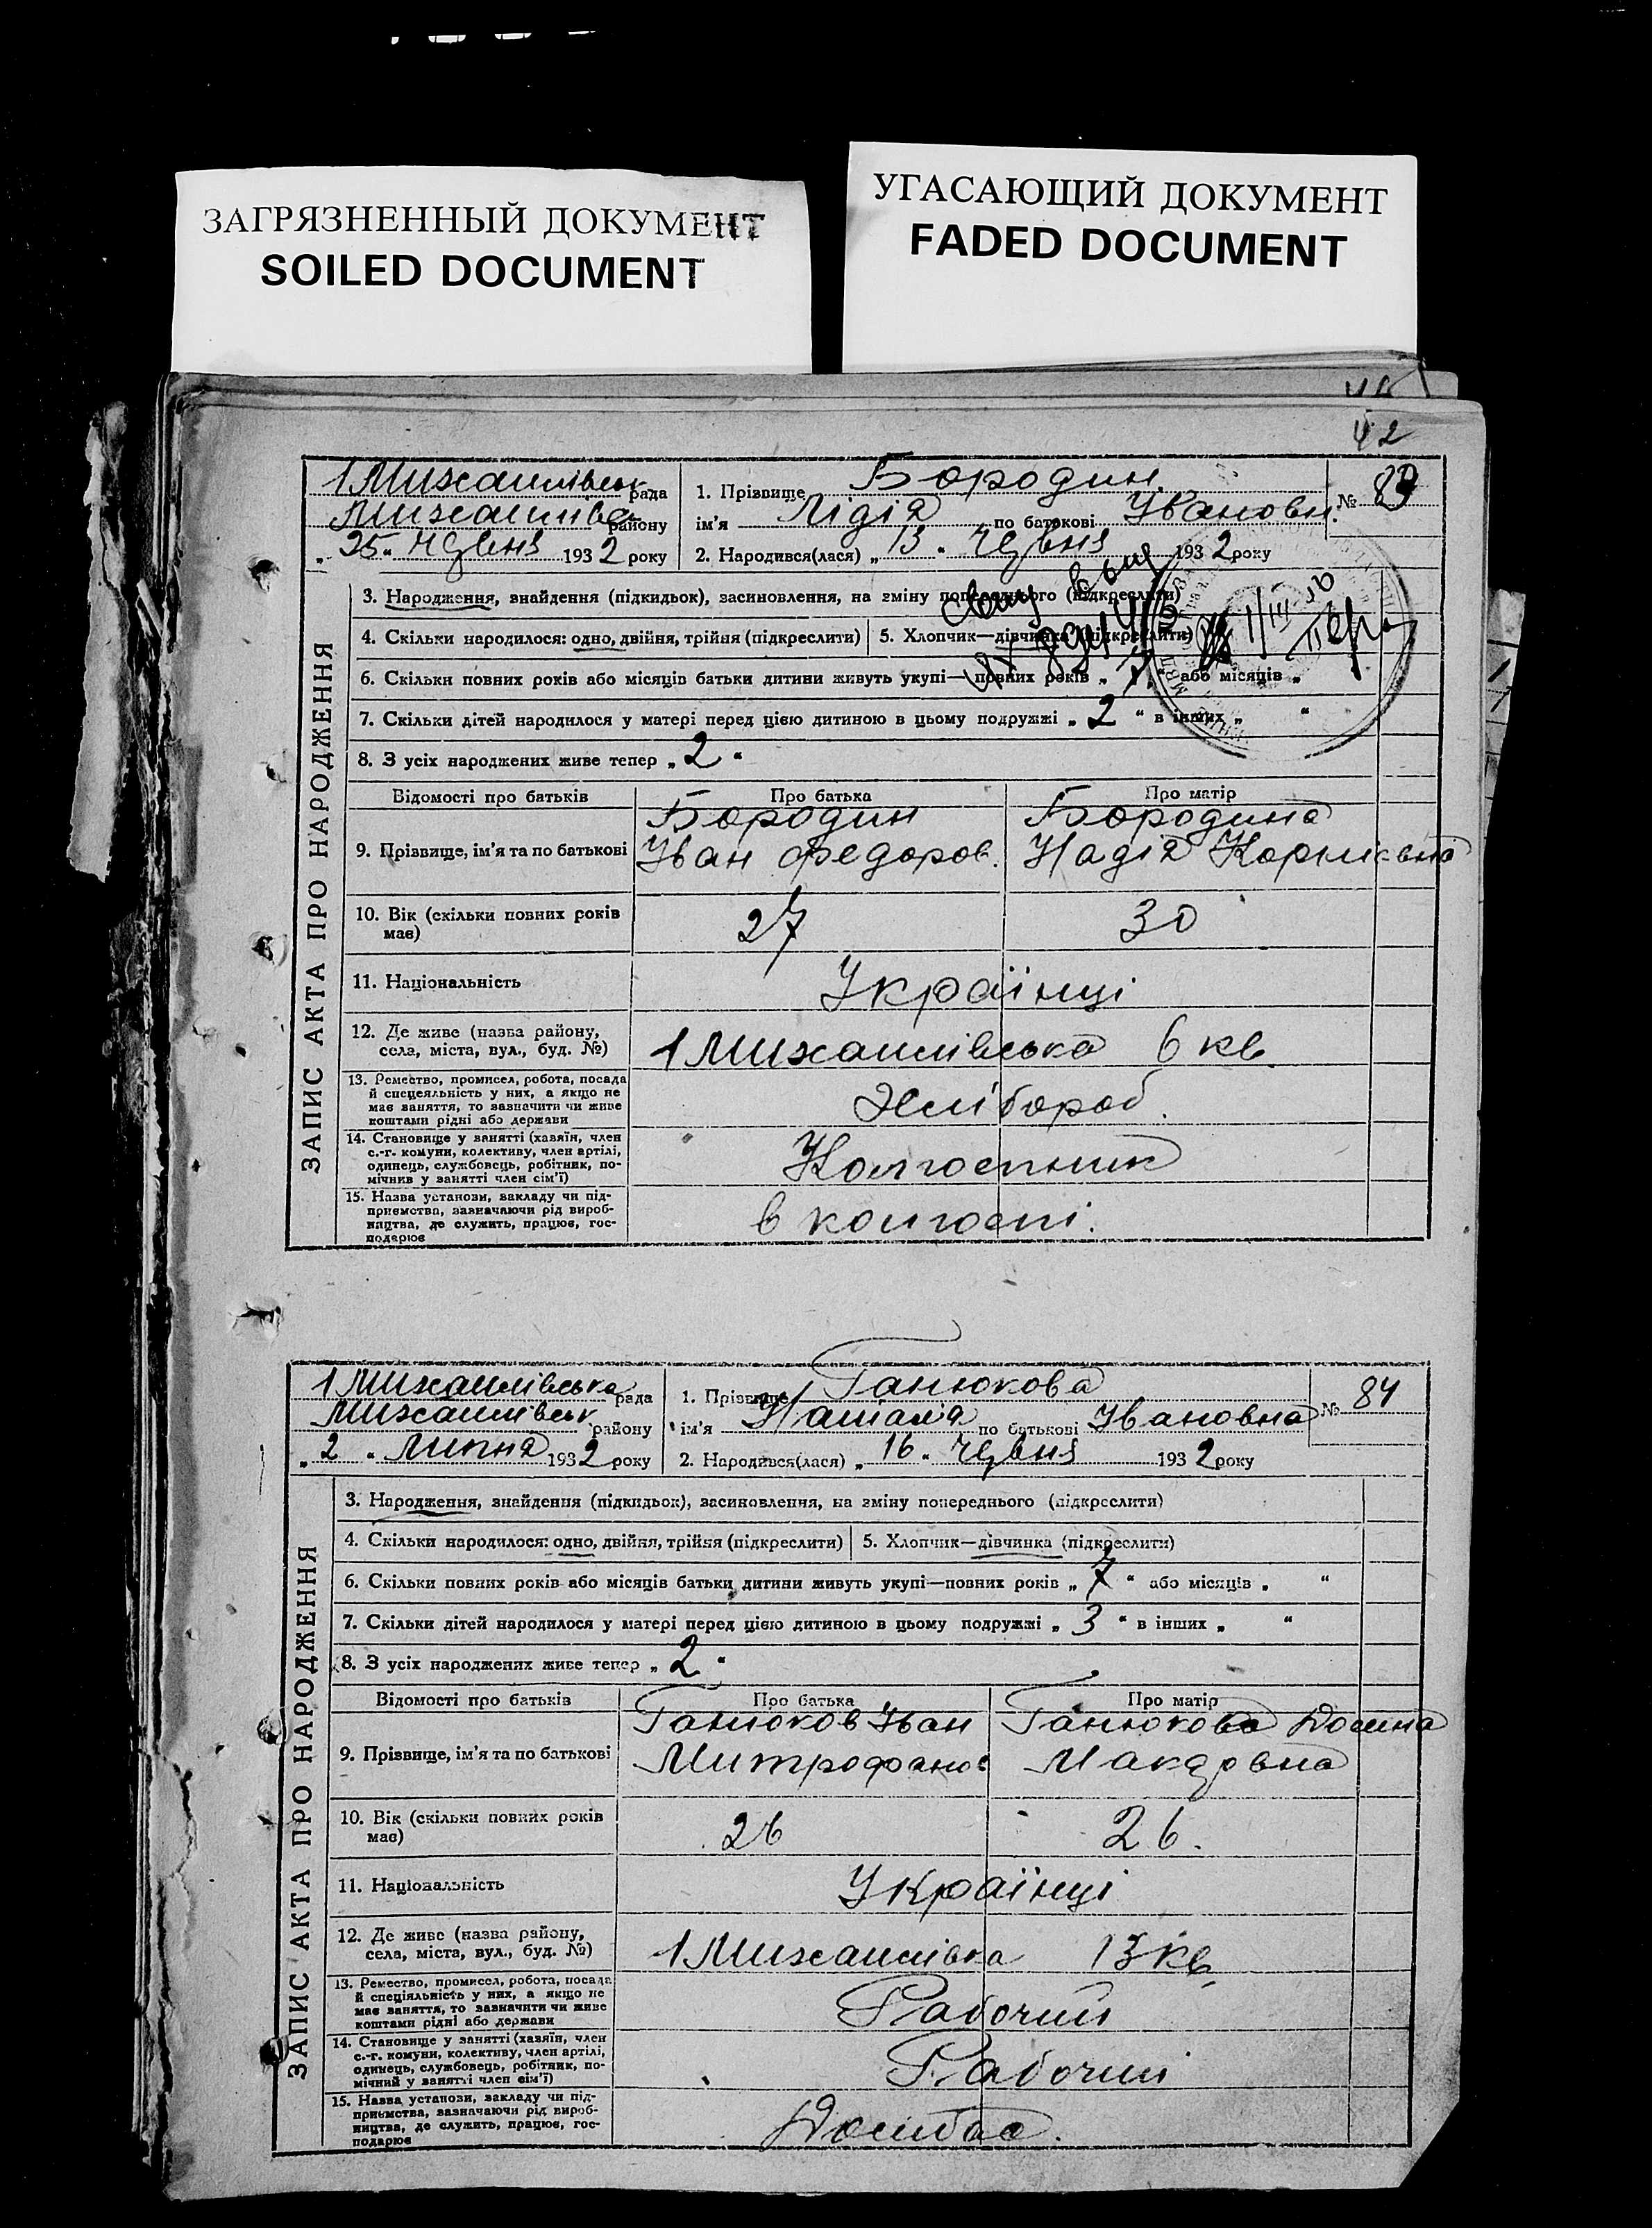 ЗАГРЯЗНЕННЫЙ ДОКУМЕНТ
SOILED DOCUMENT
УГАСАЮЩИЙ ДОКУМЕНТ
FADED DOCUMENT
42
1 Михайлівськ рада
району
25 червня 1932 року
1. Прізвище Бородин
ім'я Лідія по батькові Івановн.
2. Народився(лася) „13" червня 1932 року
№ 83
ЗАПИС АКТА ПРО НАРОДЖЕННЯ
3. Народження, знайдення (підкидьок), засиновлення, на зміну попереднього (підкреслити)
4. Скільки народилося: одно, двійня, трійня (підкреслити)
5. Хлопчик—дівчинка (підкреслити)
6. Скільки повних років або місяців батьки дитини живуть укупі—повних років „7" або місяців „
7. Скільки дітей народилося у матері перед цією дитиною в цьому подружжі „2" в інших „ "
8. З усіх народжених живе тепер „2"
Відомості про батьків
Про батька
Про матір
9. Прізвище, ім'я та по батькові
Бородин
Іван Федоров.
Бородина
Надія Корніївна
10. Вік (скільки повних років
має)
27
30
11. Національність
Українці
12. Де живе (назва району,
села, міста, вул., буд. №)
1 Михайлівська 6 кв
13. Ремество, промисел, робота, посада
й спецеяльність у них, а якщо не
має заняття, то зазначити чи живе
коштами рідні або держави
Хлібороб.
14. Становище у занятті (хазяїн, член
с.-г. комуни, колективу, член артілі,
одинець, службовець, робітник, по-
мічнив у занятті член сім'ї)
Колгоспник
15. Назва установи, закладу чи під-
приємства, зазначаючи рід вироб-
ництва, де служить, працює, гос-
подарює
в колгоспі.
1 Михайлівська рада
Михайлівськ району
„2" Липня 1932 року
1. Прізвище Ганюкова
ім'я Наталія по батькові Івановна
2. Народився(лася) „16" червня 1932 року
№ 84
ЗАПИС АКТА ПРО НАРОДЖЕННЯ
3. Народження, знайдення (підкидьок), засиновлення, на зміну попереднього (підкреслити)
4. Скільки народилося: одно, двійня, трійня (підкреслити)
5. Хлопчик—дівчинка (підкреслити)
6. Скільки повних років або місяців батьки дитини живуть укупі—повних років „7" або місяців „ "
7. Скільки дітей народилося у матері перед цією дитиною в цьому подружжі „3" в інших „ "
8. З усіх народженях живе тепер „2"
Відомості про батьків
Про батька
Про матір
9. Прізвище, ім'я та по батькові
Ганюков Іван
Митрофанов
Ганюкова Домна
Макаровна
10. Вік (скільки повних років
має)
26
26.
11. Національність
Українці
12. Де живе (назва району,
села, міста, вул., буд. №)
1 Михайлівка 13 кв
13. Ремество, промисел, робота, посада
й спеціяльність у них, а якщо не
має заняття, то зазначити чи живе
коштами рідні або держави
Рабочий
14. Становище у занятті (хазяїн, член
с.-г. комуни, колективу, член артілі,
одинець, службовець, робітник, по-
мічний у занятті член сім'ї)
Рабочий
15. Назва установи, закладу чи під-
приємства, зазначаючи рід вироб-
ництва, де служить, працює, гос-
подарює